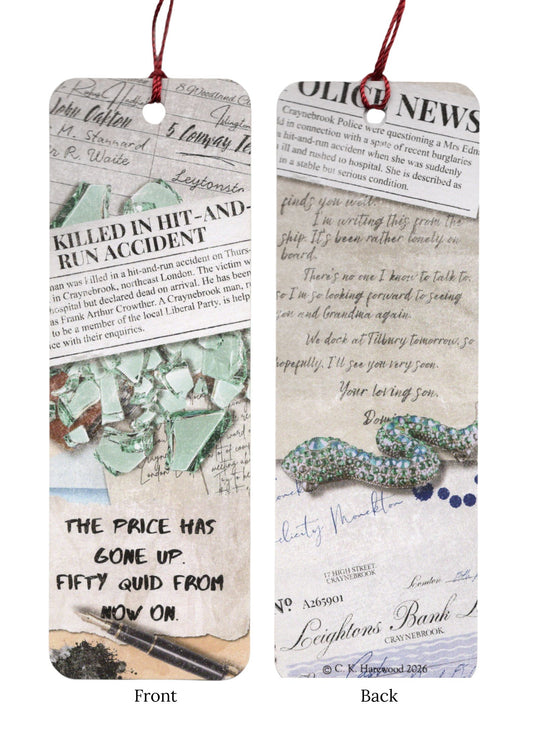 8 Woodland
John Catton
M. Stannard
5 Conway
R. Waite
Leytonst
KILLED IN HIT-AND-
RUN ACCIDENT
man was killed in a hit-and-run accident on Thurs-
in Craynebrook, northeast London. The victim w
hospital but declared dead on arrival. He has been
as Frank Arthur Crowther. A Craynebrook man, r
to be a member of the local Liberal Party, is help
ce with their enquiries.
THE PRICE HAS
GONE UP.
FIFTY QUID FROM
NOW ON.
Front
POLICE NEWS
Craynebrook Police were questioning a Mrs Edn
d in connection with a spate of recent burglaries
a hit-and-run accident when she was suddenly
ill and rushed to hospital. She is described as
in a stable but serious condition.
finds you well.
I'm writing this from the
ship. It's been rather lonely on
board.
There's no one I know to talk to,
so I'm so looking forward to seeing
you and Grandma again.
We dock at Tilbury tomorrow, so
hopefully, I'll see you very soon.
Your loving son,
Domi
Monckton
17 HIGH STREET
CRAYNEBROOK
London
Nº A265901
Leightons Bank L
CRAYNEBROOK
© C. K. Harewood 2026
Back